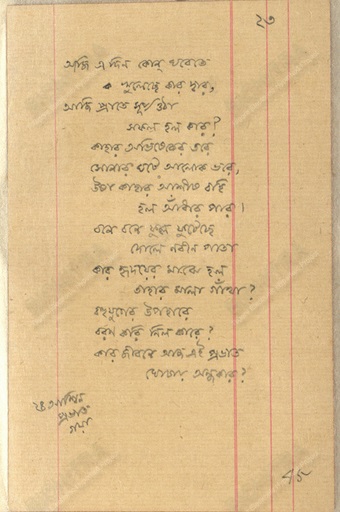 ২৩
আজি এ দিন কোন্ ঘরেতে
খুলেছে কার দ্বার,
আজি প্রাতে সূর্য ওঠা
সফল হল কার?
কাহার অভিষেকের তরে
সোনার ঘটে আলোক ভরে,
উষা কাহার আশিস বহি
হল আঁধার পার।
বনে বনে ফুল ফুটেছে
দোলে নবীন পাতা
কার হৃদয়ের মাঝে হল
তাহার মালা গাঁথা?
বহুযুগের উপহারে
বরণ করি নিল কারে?
কার জীবনে আজ এই প্রভাত
ঘোচায় অন্ধকার?
আশ্বিন
প্রভাত
গয়া
45